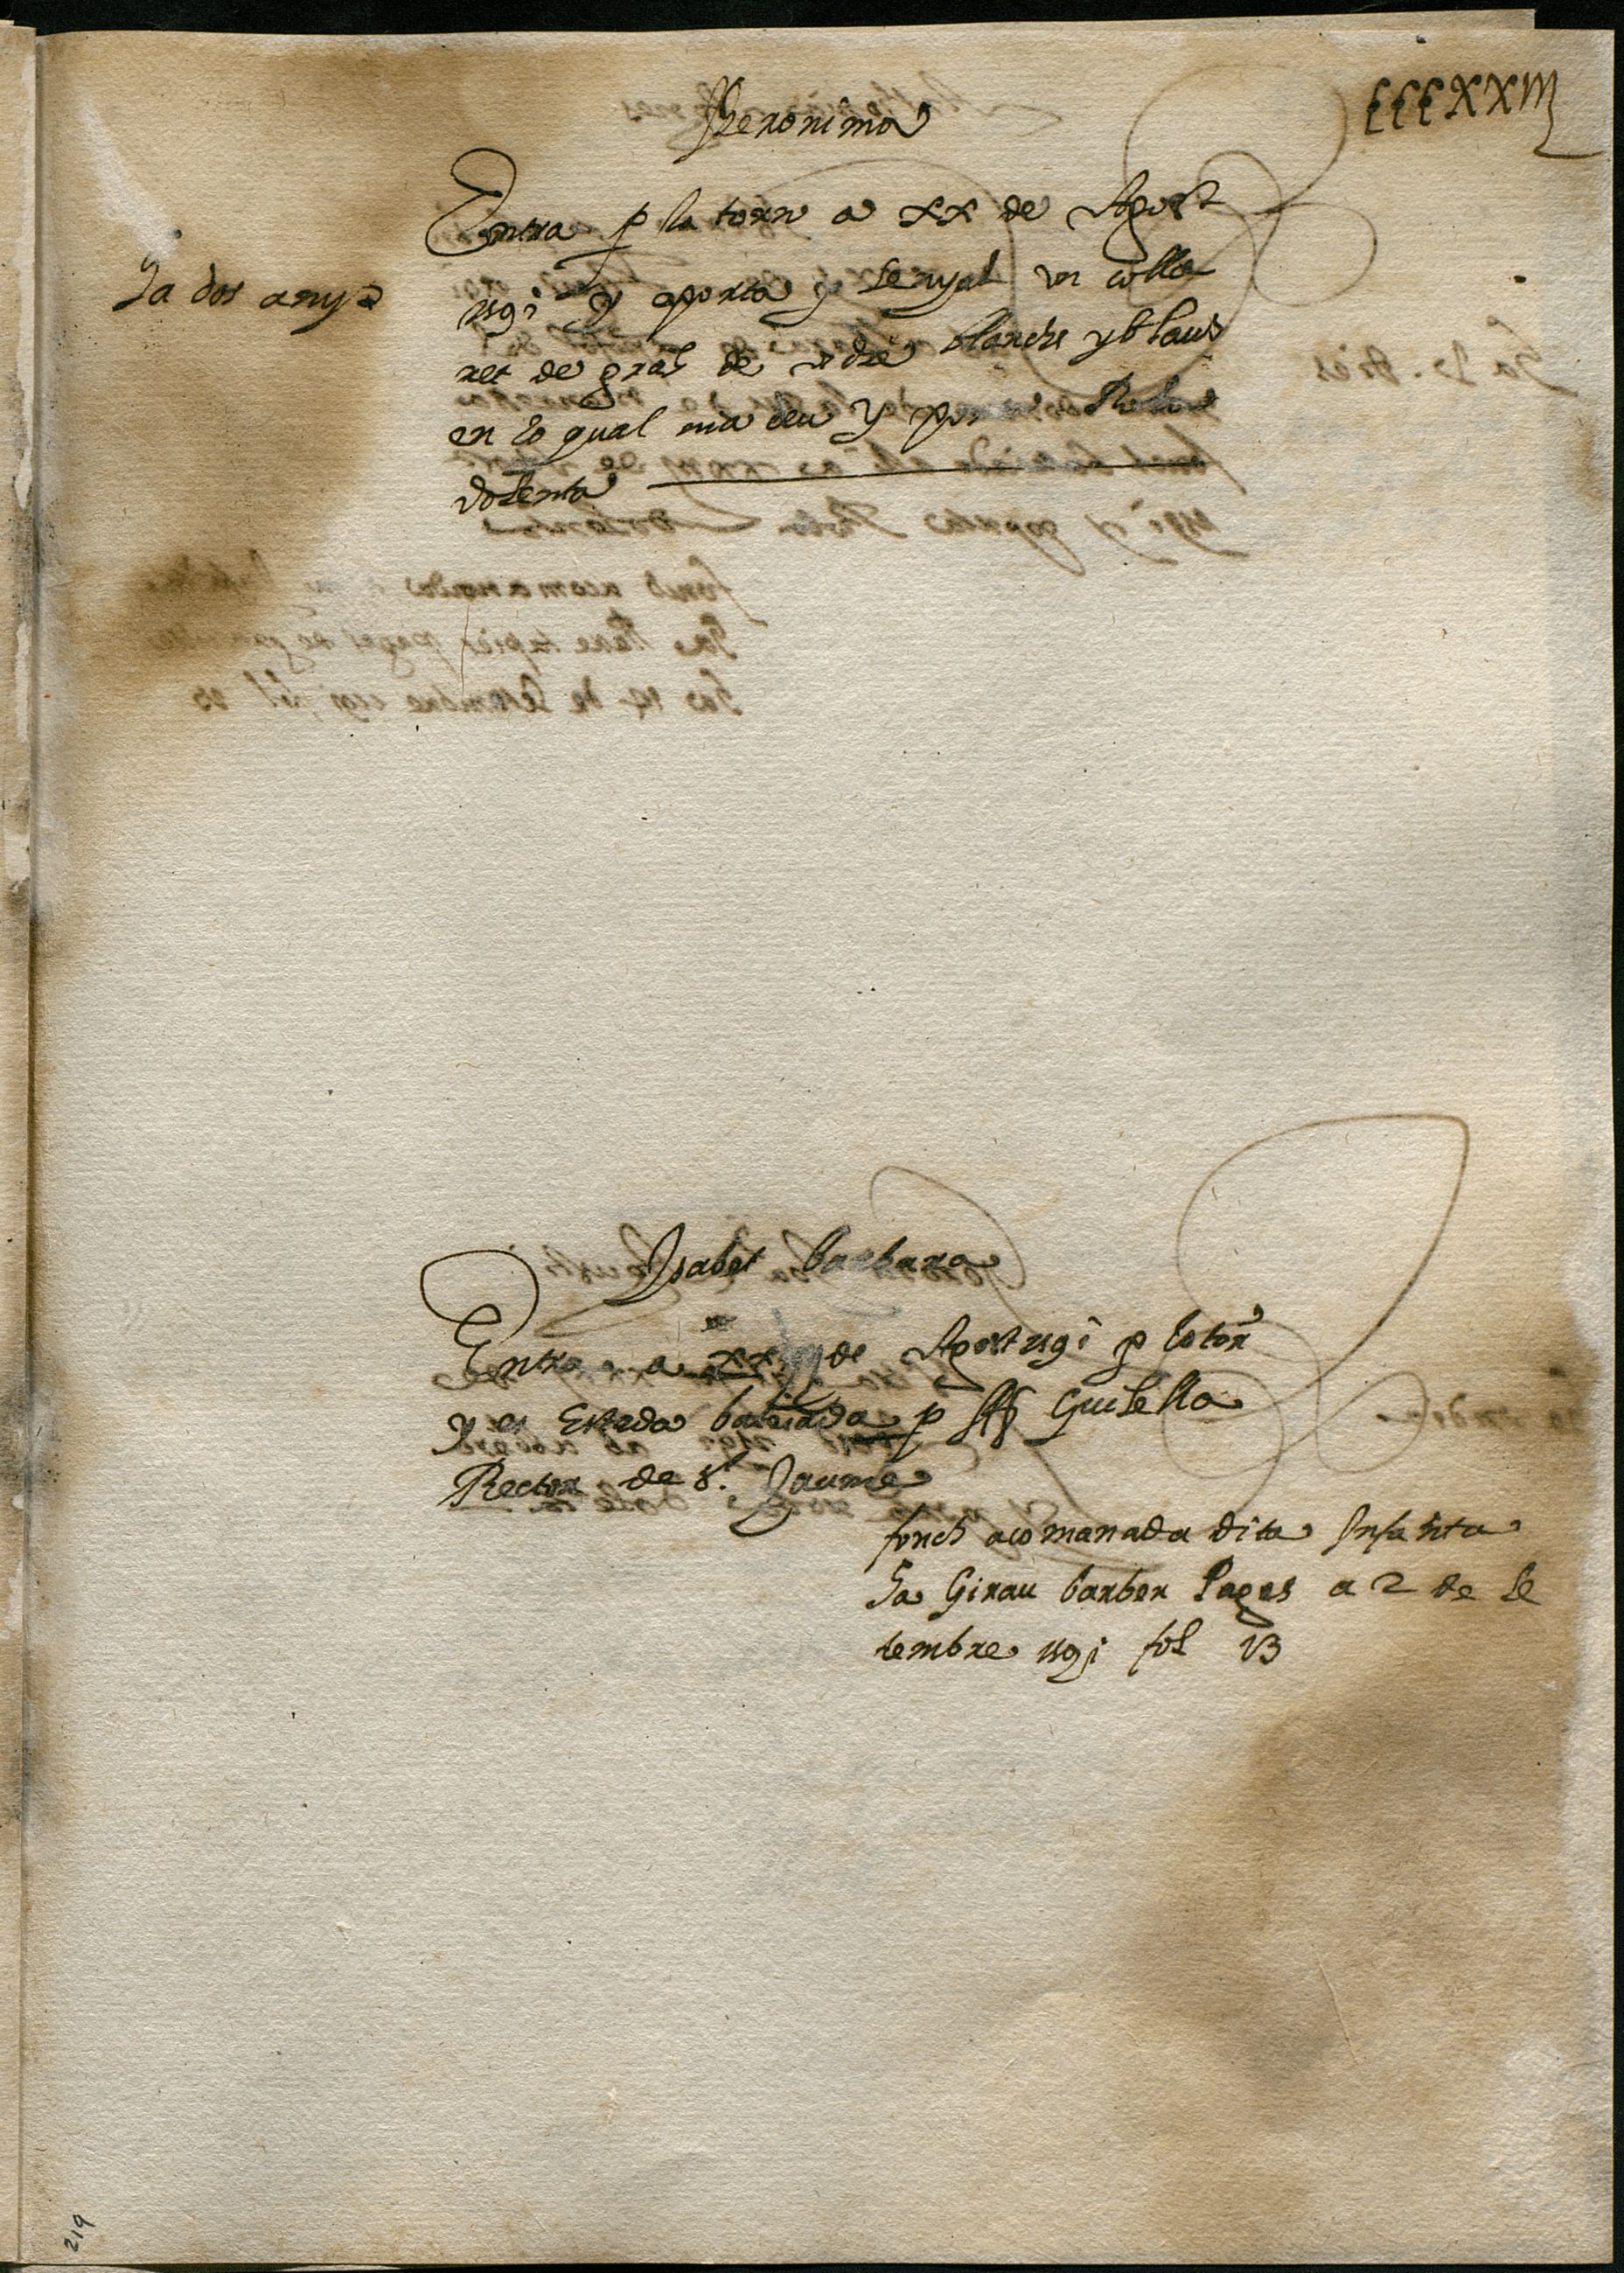 CCCXXIIJ
Hieronima
Entra p la torn a xx de Agost
Ja dos anys
1591 y aporta p senyal vn colla
ret de gras de vidre blanchs y blaus
en lo qual
dolenta
Isabet barbara
Entra a de Agost 1591 p lo torn
y es Estada batejada p Guilella
Rector de St. Jaume
fonch acomanada dita Infanta
Ja Girau barber Pages a 2 de Se
tembre 1591 fol 13
219